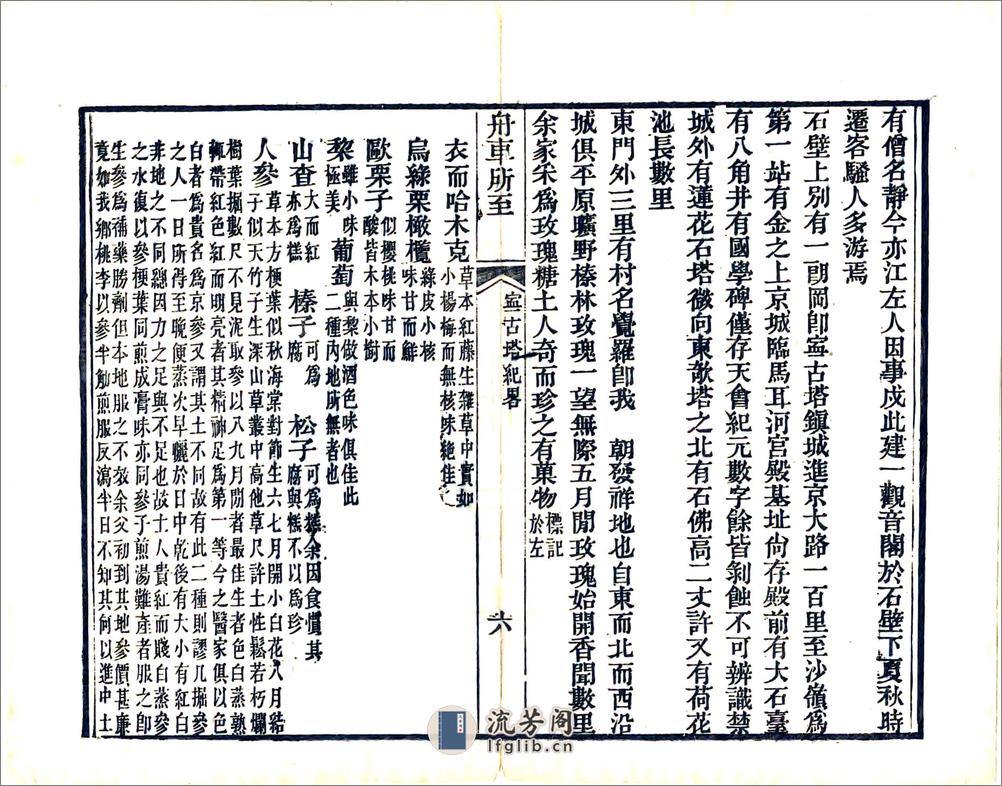 有僧名靜今亦江左人因事戍此建一觀音閣於石壁下夏秋時
遷客騷人多游焉
石壁上別有一朗岡卽寧古塔鎮城進京大路一百里至沙嶺爲
第一站有金之上京城臨馬耳河宮殿基址尙存殿前有大石臺
有八角井有國學碑僅存天會紀元數字餘皆剝蝕不可辨識禁
城外有蓮花石塔微向東欹塔之北有石佛高二丈許又有荷花
池長數里
東門外三里有村名覺羅卽我 朝發祥地也自東而北而西沿
城俱平原曠野榛林玫瑰一望無際五月間玫瑰始開香聞數里
余家采爲玫瑰糖土人奇而珍之有菓物標記
於左
舟車所至
寧古塔紀畧
六
衣而哈木克草本紅藤生雜草中實如
小楊梅而無核味絶佳
烏綠栗橄欖綠皮小核
味甘而鮮
歐栗子似櫻桃味甘而
酸皆木本小樹
棃雖小味
極美葡萄與棃做酒色味俱佳此
二種內地所無者也
山查大而紅
亦爲糕榛子可爲
腐松子可爲糕人余因食慣其
腐與糕不以爲珍
人參草本方梗葉似秋海棠對節生六七月開小白花八月結
子似天竹子生深山草叢中高他草尺許土性鬆若朽爛
樹葉攝數尺不見泥取參以八九月間者最佳生者色白蒸熟
輒帶紅色紅而明亮者其精神足爲第一等今之醫家俱以色
白者爲貴名爲京參又謂其土不同故有此二種則謬凡掘參
之人一日所得至晩便蒸次早曬於日中乾後有大小有紅白
非地之不同總因力之足與不足也故土人貴紅而賤白蒸參
之水復以參梗葉同煎成膏味亦同參子煎湯難產者服之卽
生參爲補藥勝劑但本地服之不效余父初到其地參價甚廉
竟如我鄉桃李以參半觔煎服反瀉半日不知其何以進中土
流芳阁
lfglib.cn